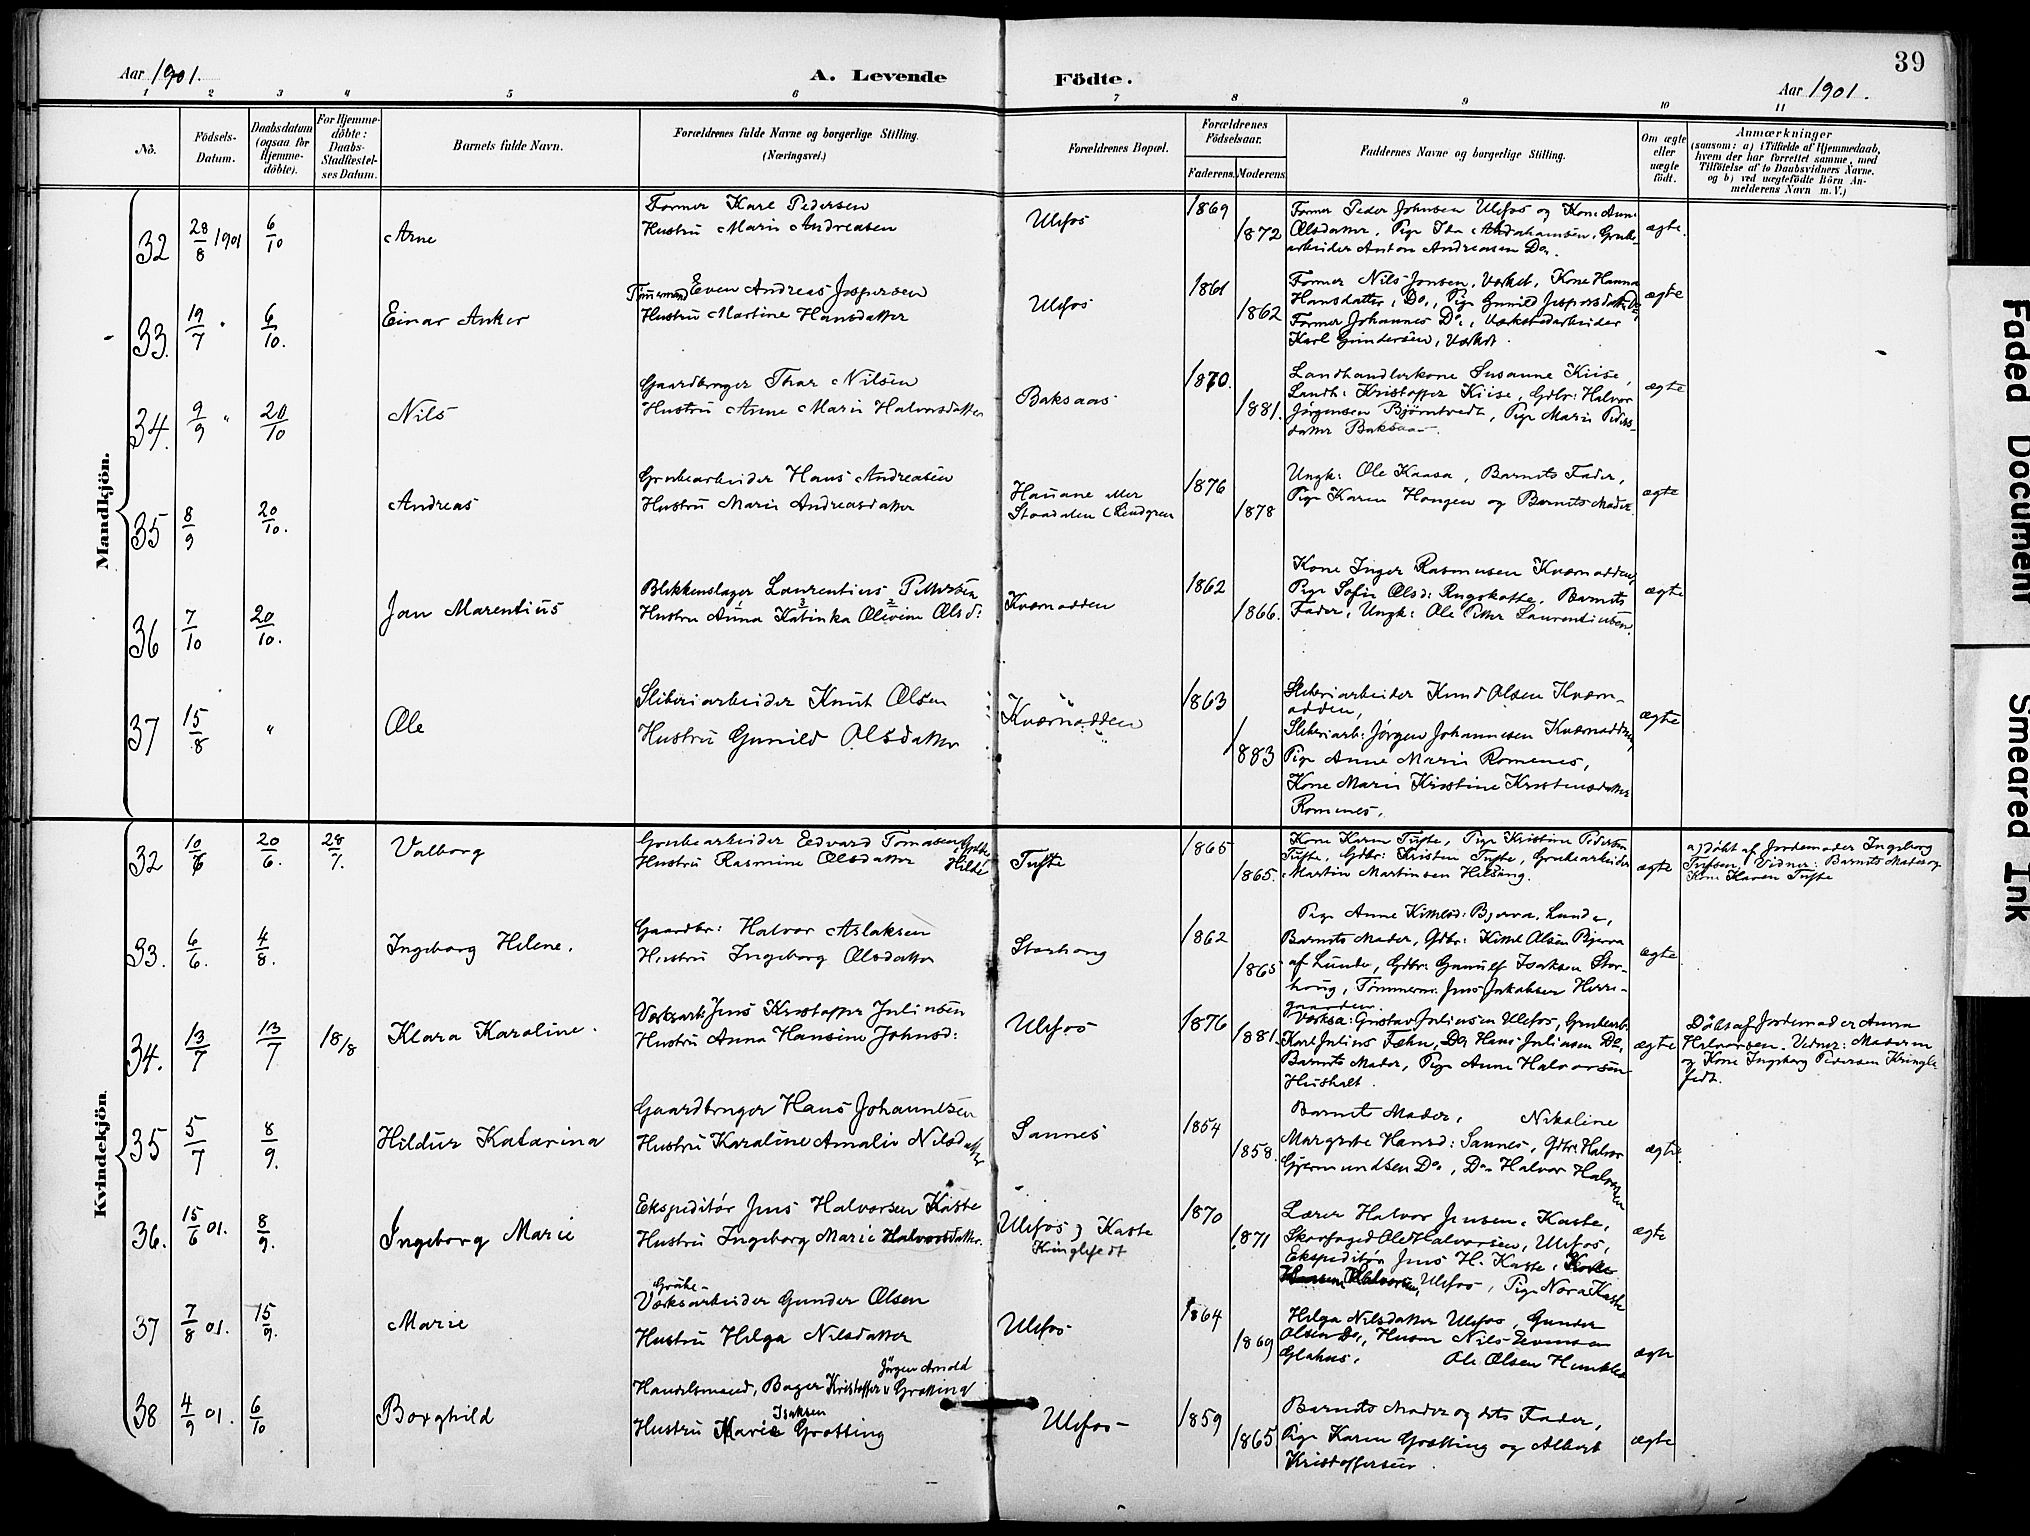 39
Aar 1901.
A. Levende Födte.
Aar 1901.
1 2 3 4 5 6 7 8 9 10 11
No.
Födsels-
Datum.
Daabsdatum
(ogsaa for
Hjemme-
döbte).
For Hjemme-
döbte:
Daabs-
Stadfæstel-
ses Datum.
Barnets fulde Navn.
Forældrenes fulde Navne og borgerlige Stilling.
(Næringsvei.)
Forældrenes Bopæl.
Forældrenes
Födselsaar.
Faderens.
Moderens.
Faddernes Navne og borgerlige Stilling.
Om ægte
eller
uægte
født.
Anmærkninger
(saasom: a) i Tilfælde af Hjemmedaab,
hvem der har forrettet samme, med
Tilföielse af to Daabsvidners Navne.
og b) ved uægtefödte Börn An-
melderens Navn m. V.)
Mandkjön.
32 28/8 1901 6/10 Arne
Former Karl Pedersen
Hustru Marie Andreasen
Ulefos 1869 1872
Former Peder Johnsen Ulefos og Kone Anne
Olsdatter, Pige Ida Abrahamsen, Grube-
arbeider Anton Andreasen Do.
ægte.
33. 19/7 " 6/10. Einar Anker
Tömmermand Even Andreas Jespersen
Hustru Martine Hansdatter
Ulefos 1861 1862
Former Nils Jonsen, Værket, Kone Hanna
Hansdatter, Do., Pige Gunild Jespersdatter
Former Johannes Do., Værkstedarbeider
Karl Gundersen, Værket.
ægte
34. 9/9 " 20/10 Nils
Gaardbruger Thor Nilsen
Hustru Anne Marie Halvorsdatter
Baksaas 1870. 1881.
Landhandlerkone Susanne Kiise,
Landh: Kristoffer Kiise, Gdbr: Halvor
Jørgensen Bjørntvedt, Pige Marie Peders-
datter Baksaas.
ægte
35 8/9 20/10. Andreas
Grubearbeider Hans Andreasen
Hustru Marie Andreasdatter
Hauane eller
Staadalen (Lindgren
1876 1878
Ungk: Ole Kaasa, Barnets Fader,
Pige Karen Haugen og Barnets Moder.
ægte
36 7/10 20/10. Jan Marentius
Blikkenslager Laurentius Pettersen
Hustru Anna Katinka Olevine Olsd:
Kværnodden 1862 1866.
Kone Inger Rasmusen Kværnodden,
Pige Sofie Olsd: Rugskatte, Barnets
Fader, Ungk: Ole Petter Laurentiusen.
ægte
37 15/8 " Ole
Sliberiarbeider Knut Olsen
Hustru Gunild Olsdatter
Kværnodden 1863 1883
Sliberiarbeider Knud Olsen Kværn-
odden,
Sliberiarb: Jørgen Johannesen Kværnodden,
Pige Anne Marie Romenes,
Kone Marie Kristine Kristensdatter
Romenes.
ægte
Kvindekjön.
32 10/6 20/6. 28/7. Valborg
Grubearbeider Edvard Tomassen
Hustru Rasmine Olsdatter
Tufte 1865 1865.
Kone Karen Tufte, Pige Kristine Pedersen
Tufte, Gdbr: Kristen Tufte, Grubearbeider
Martin Martinsen Helsäng.
ægte
a) Døbt af Jordemoder Ingeborg
Tufsen, Vidner: Barnets Moder og
Kone Karen Tufte
33. 6/6. 4/8. Ingeborg Helene.
Gaardbr: Halvor Aslaksen
Hustru Ingeborg Olsdatter
Storhaug 1862 1865
Pige Anne Kittilsd: Bjerva, Lunde,
Barnets Moder, Gdbr: Kittil Olsen Bjerva
af Lunde, Gdbr: Gunulf Isaksen Stor-
houg, Tømmerm: Jens Jakobsen Herre-
gaarden.
ægte
34. 13/7 13/7 18/8 Klara Karoline.
Værksarb: Jens Kristoffer Juliusen
Hustru Anna Hansine Johnsd:
Ulefos 1876 1881.
Værksa: Gustav Juliusen Ulefos, Grubearb.
Karl Julius Fæhn, Do, Hans Juliusen Do,
Barnets Moder, Pige Anne Halvorsen
Hushalt.
ægte
Döbt af Jordemoder Anna
Halvorsen. Vidner: Moderen
og Kone Ingeborg Pedersen Kringle-
fedt.
35 5/7 8/9. Hildur Katarina
Gaardbruger Hans Johannesen
Hustru Karoline Amalie Nilsdatter
Sannes 1854 1858.
Barnets Moder, Nikoline
Margrete Hansd: Sannes, Gdbr: Halvor
Gjermundsen Do, Do. Halvor Halvorsen
ægte.
36. 15/6 01. 8/9. Ingeborg Marie
Ekspeditør Jens Halvorsen Kaste
Hustru Ingeborg Marie Halvorsdatter.
Ulefos, Kaste
Kringlefedt
1870 1871
Lærer Halvor Jensen, Kaste,
Skovfoged Ole Halvorsen, Ulefos,
Ekspeditør Jens H. Kaste,
Ulefos, Pige Nora Kaste
ægte
37 7/8 01. 15/9. Marie
Grube-
Værksarbeider Gunder Olsen
Hustru Helga Nilsdatter
Ulefos 1864 1869
Helga Nilsdatter Ulefos, Gunder
Olsen Do., Nils Evensen
Glahus, Ole Olsen
ægte
38 4/9 01. 6/10 Borghild
Jörgen Arnold
Handelsmand, Bager Kristoffer Grotting
Isaksen
Hustru Marie Grotting
Ulefos 1859 1865
Barnets Moder og dets Fader,
Pige Karen Grotting og Albert
Kristoffersen.
ægte
Faded Document
Smeared Ink